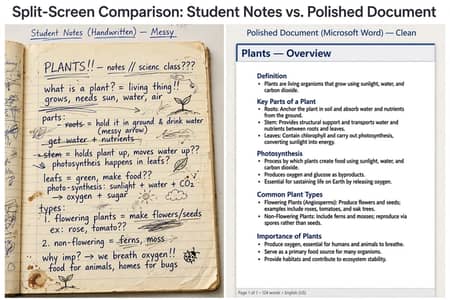 Split-Screen Comparison: Student Notes vs. Polished Document
Student Notes (Handwritten) — Messy
PLANTS!! – notes // scienc class???
what is a plant? = living thing!!
grows, needs sun, water, air
parts:
- roots = hold it in ground & drink water
(messy arrow)
get water + nutrients
- stem = holds plant up, moves water up??
photosyntheis happens in leafs?
leafs = green, make food??
photo-synthesis: sunlight + water + CO₂
→ oxygen + sugar
types:
1. flowering plants = make flowers/seeds
ex: rose, tomato??
2. non-flowering = ferns, moss
why imp? → we breath oxygen!!
food for animals, homes for bugs
Polished Document (Microsoft Word) — Clean
Plants — Overview
Definition
• Plants are living organisms that grow using sunlight, water, and
carbon dioxide.
Key Parts of a Plant
• Roots: Anchor the plant in soil and absorb water and nutrients
from the ground.
• Stem: Provides structural support and transports water and
nutrients between roots and leaves.
• Leaves: Contain chlorophyll and carry out photosynthesis,
converting sunlight into energy.
Photosynthesis
• Process by which plants create food using sunlight, water, and
carbon dioxide.
• Produces oxygen and glucose as byproducts.
• Essential for sustaining life on Earth by releasing oxygen.
Common Plant Types
• Flowering Plants (Angiosperms): Produce flowers and seeds;
examples include roses, tomatoes, and oak trees.
• Non-Flowering Plants: Include ferns and mosses; reproduce via
spores rather than seeds.
Importance of Plants
• Produce oxygen, essential for humans and animals to breathe.
• Serve as a primary food source for many organisms.
• Provide habitats and contribute to ecosystem stability.
Page 1 of 1 • 124 words • English (US)